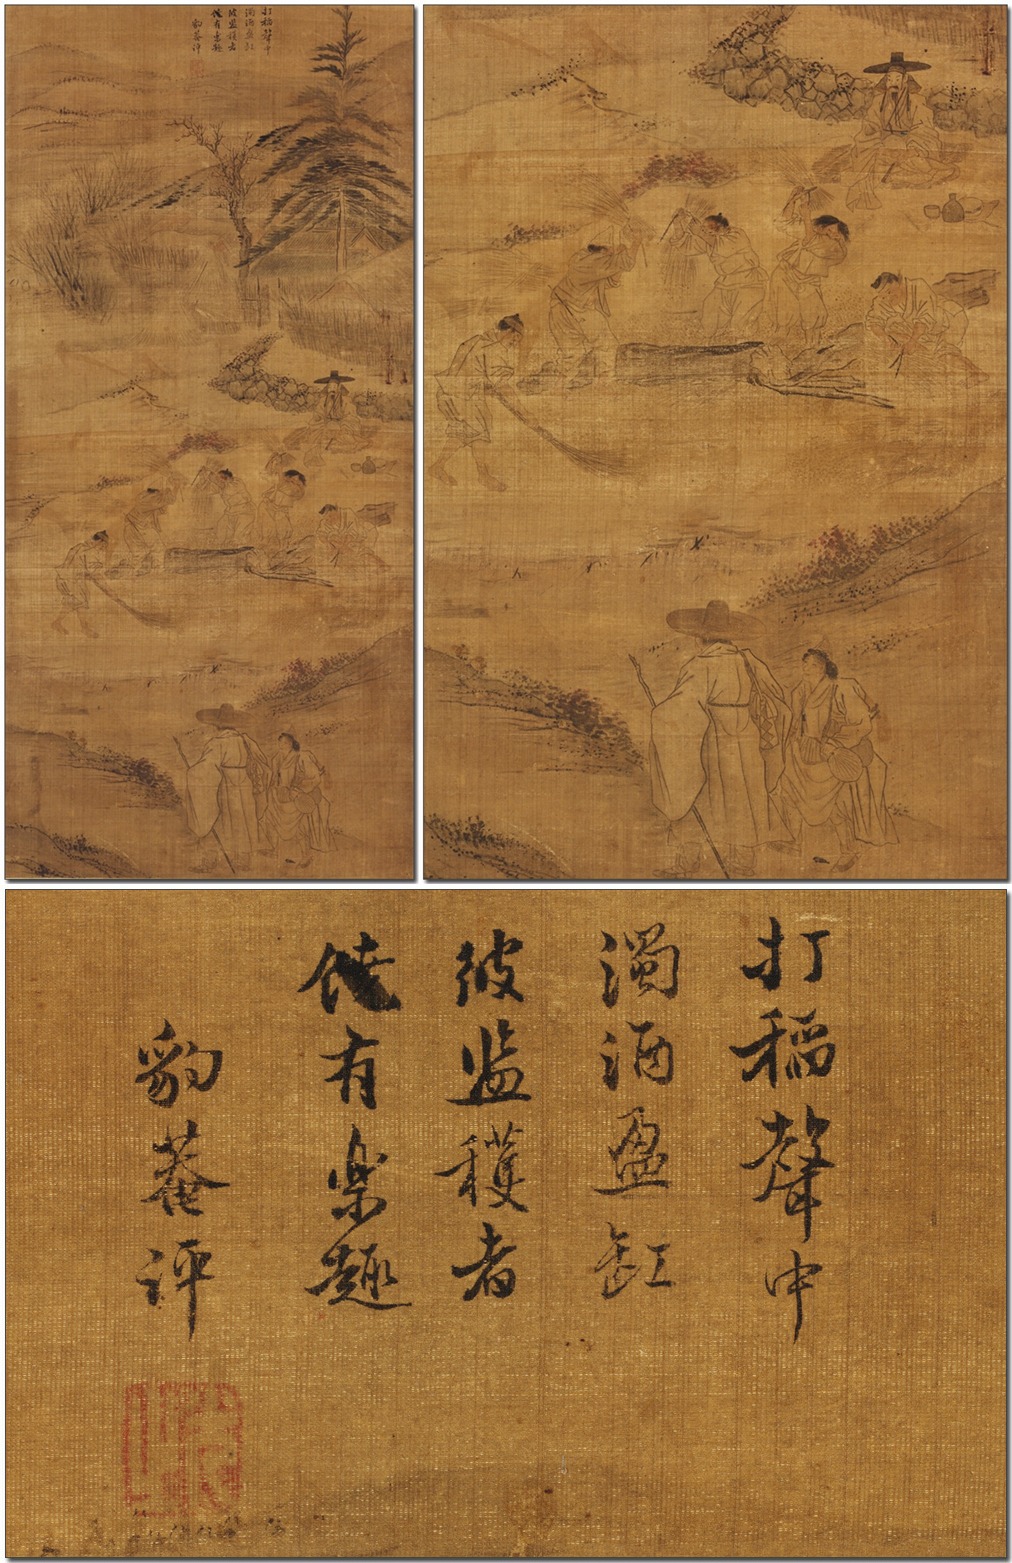 打稻聲中
濁酒盈缸
彼監穫者
饒有樂趣
豹菴評